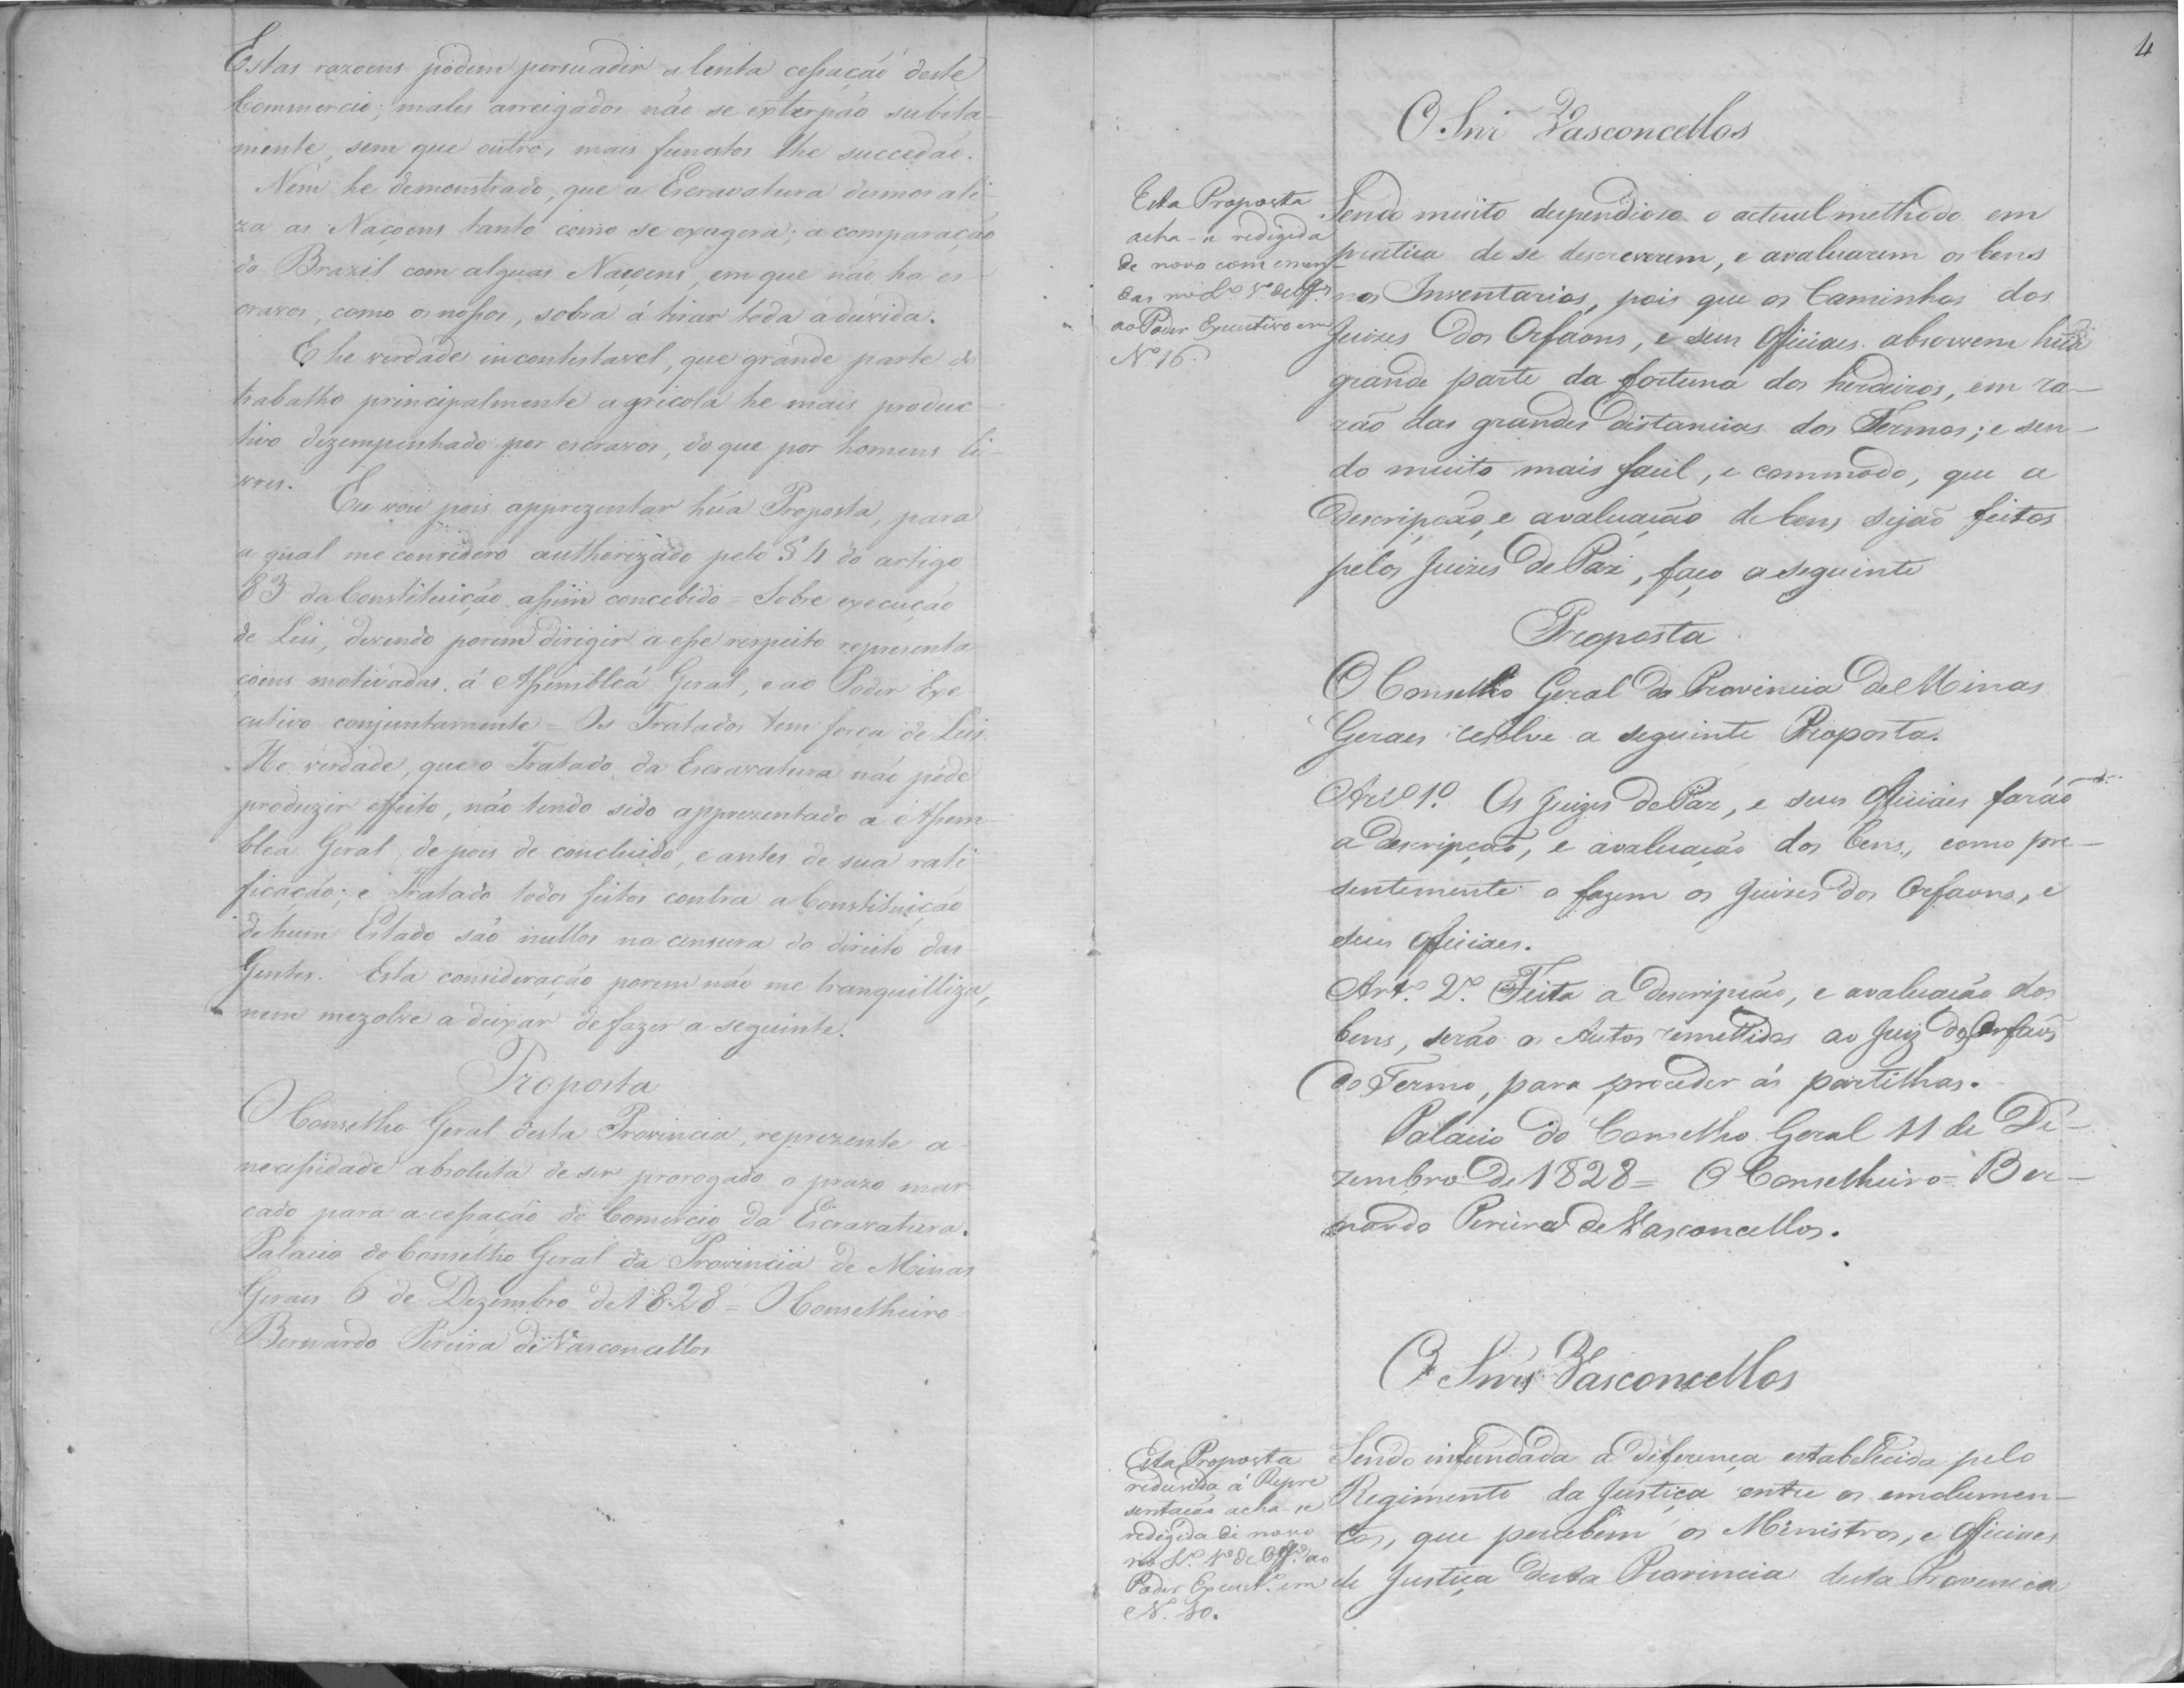 Estas razoens podem persuadir a lenta cessação deste
Commercio; males arreigados não se exterpão subita-
mente, sem que outros mais funestos lhe succedão.
Nem he demonstrado, que a Escravatura desmorali-
za as Naçoens tanto como se exagera; a comparação
do Brazil com alguas Naçoens, em que não ha es-
cravos, como os nossos, sobra á tirar toda a duvida.
E he verdade incontestavel, que grande parte do
trabalho principalmente agricola he mais produc-
tivo dezempenhado por escravos, do que por homens li-
vres.
Eu vou pois apprezentar hũa Proposta, para
a qual me considero authorizado pelo § 4 do artigo
83 da Constituição assim concebido = Sobre execução
de Leis, devendo porem dirigir a esse respeito representa-
çoens motivadas á Assemblea Geral, e ao Poder Exe-
cutivo conjuntamente = Os Tratados tem força de Leis.
He verdade, que o Tratado da Escravatura não pode
produzir effeito, não tendo sido apprezentado a Assem-
blea Geral, depois de concluido, e antes de sua rati-
ficação; e Tratado todos feitos contra a Constituição
de hum Estado são nullos na censura do direito das
Gentes. Esta consideração porem não me tranquilliza,
nem mezolve a deixar de fazer a seguinte.
Proposta
O Conselho Geral desta Provincia, reprezente a
necessidade absoluta de ser prorogado o prazo mar-
cado para a cessação do Comercio da Escravatura.
Palacio do Conselho Geral da Provincia de Minas
Geraes 6 de Dezembro de 1828 = O Conselheiro
Bernardo Pereira de Vasconcellos
4
O Snr Vasconcellos
Esta Proposta
acha-se redigida
de novo com emen-
das no L.º 1º de Off.ºs
ao Poder Executivo em
Nº 16.
Sendo muito dispendioso o actual methodo em
pratica de se descreverem, e avaluarem os bens
nos Inventarios, pois que os Caminhos dos
Juizes dos Orfaons, e seus Officiaes absorvem hũa
grande parte da fortuna dos herdeiros, em ra-
zão das grandes distancias dos Termos; e sen-
do muito mais facil, e commodo, que a
descripção, e avaluação de bens sejão feitos
pelos Juizes de Paz, faço a seguinte
Proposta
O Conselho Geral da Provincia de Minas
Geraes resolve a seguinte Proposta.
Art.º 1.º Os Juizes de Paz, e seus Officiaes farão
a descripção, e avaluação dos bens, como pre-
sentemente o fazem os Juizes dos Orfaons, e
seus Officiaes.
Art.º 2.º Feita a descripção, e avaluação dos
bens, serão os Autos remettidos ao Juiz dos Orfãos
do Termo, para proceder ás partilhas.
Palacio do Conselho Geral 11 de De-
zembro de 1828 = O Conselheiro = Ber-
nardo Pereira de Vasconcellos.
O Snr Vasconcellos
Esta Proposta
reduzida á Repre
sentação acha-se
redigida de novo
no L.º 1º de Off.ºs ao
Poder Execut.º em
N. 10.
Sendo infundada a diferença estabelecida pelo
Regimento da Justiça entre os emolumen-
tos, que percebem os Ministros, e Officiaes
de Justiça desta Provincia desta Provincia